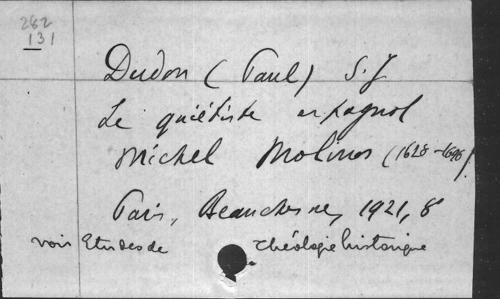 282
131
Dudon (Paul) S. J
Le quiétiste espagnol
Michel Molinos (1628-1696)
Paris, Beauchesne, 1921, 8°
voir Etudes de théologie historique